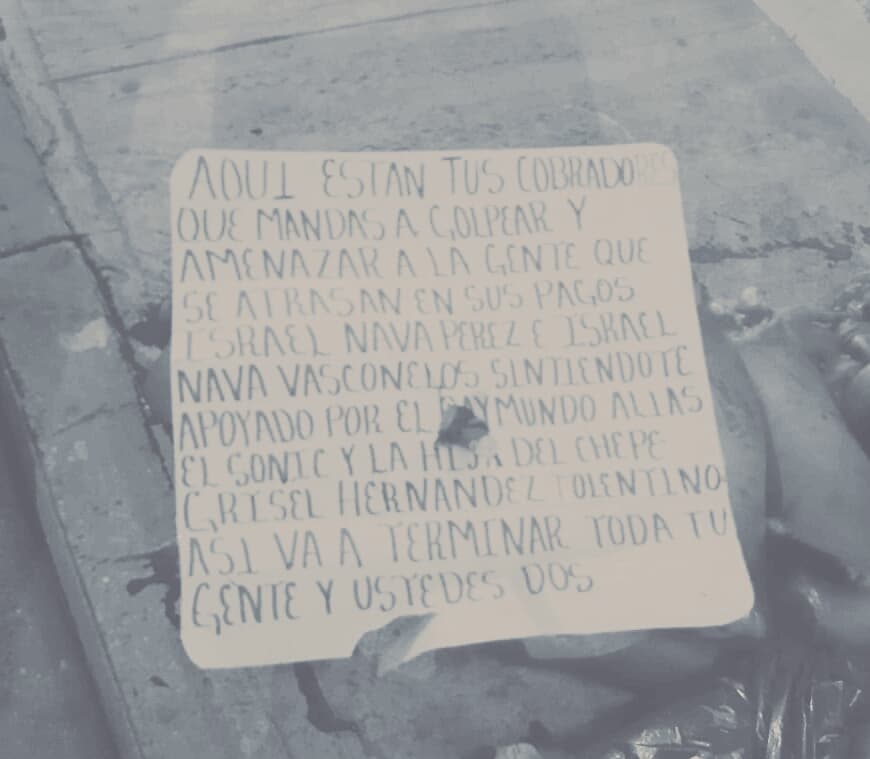 AQUI ESTAN TUS COBRADORES
QUE MANDAS A GOLPEAR Y
AMENAZAR A LA GENTE QUE
SE ATRASAN EN SUS PAGOS
ISRAEL NAVA PEREZ E ISRAEL
NAVA VASCONELOS SINTIENDOTE
APOYADO POR EL RAYMUNDO ALIAS
EL SONIC Y LA HIJA DEL CHEPE
GRISEL HERNANDEZ TOLENTINO
ASI VA A TERMINAR TODA TU
GENTE Y USTEDES DOS